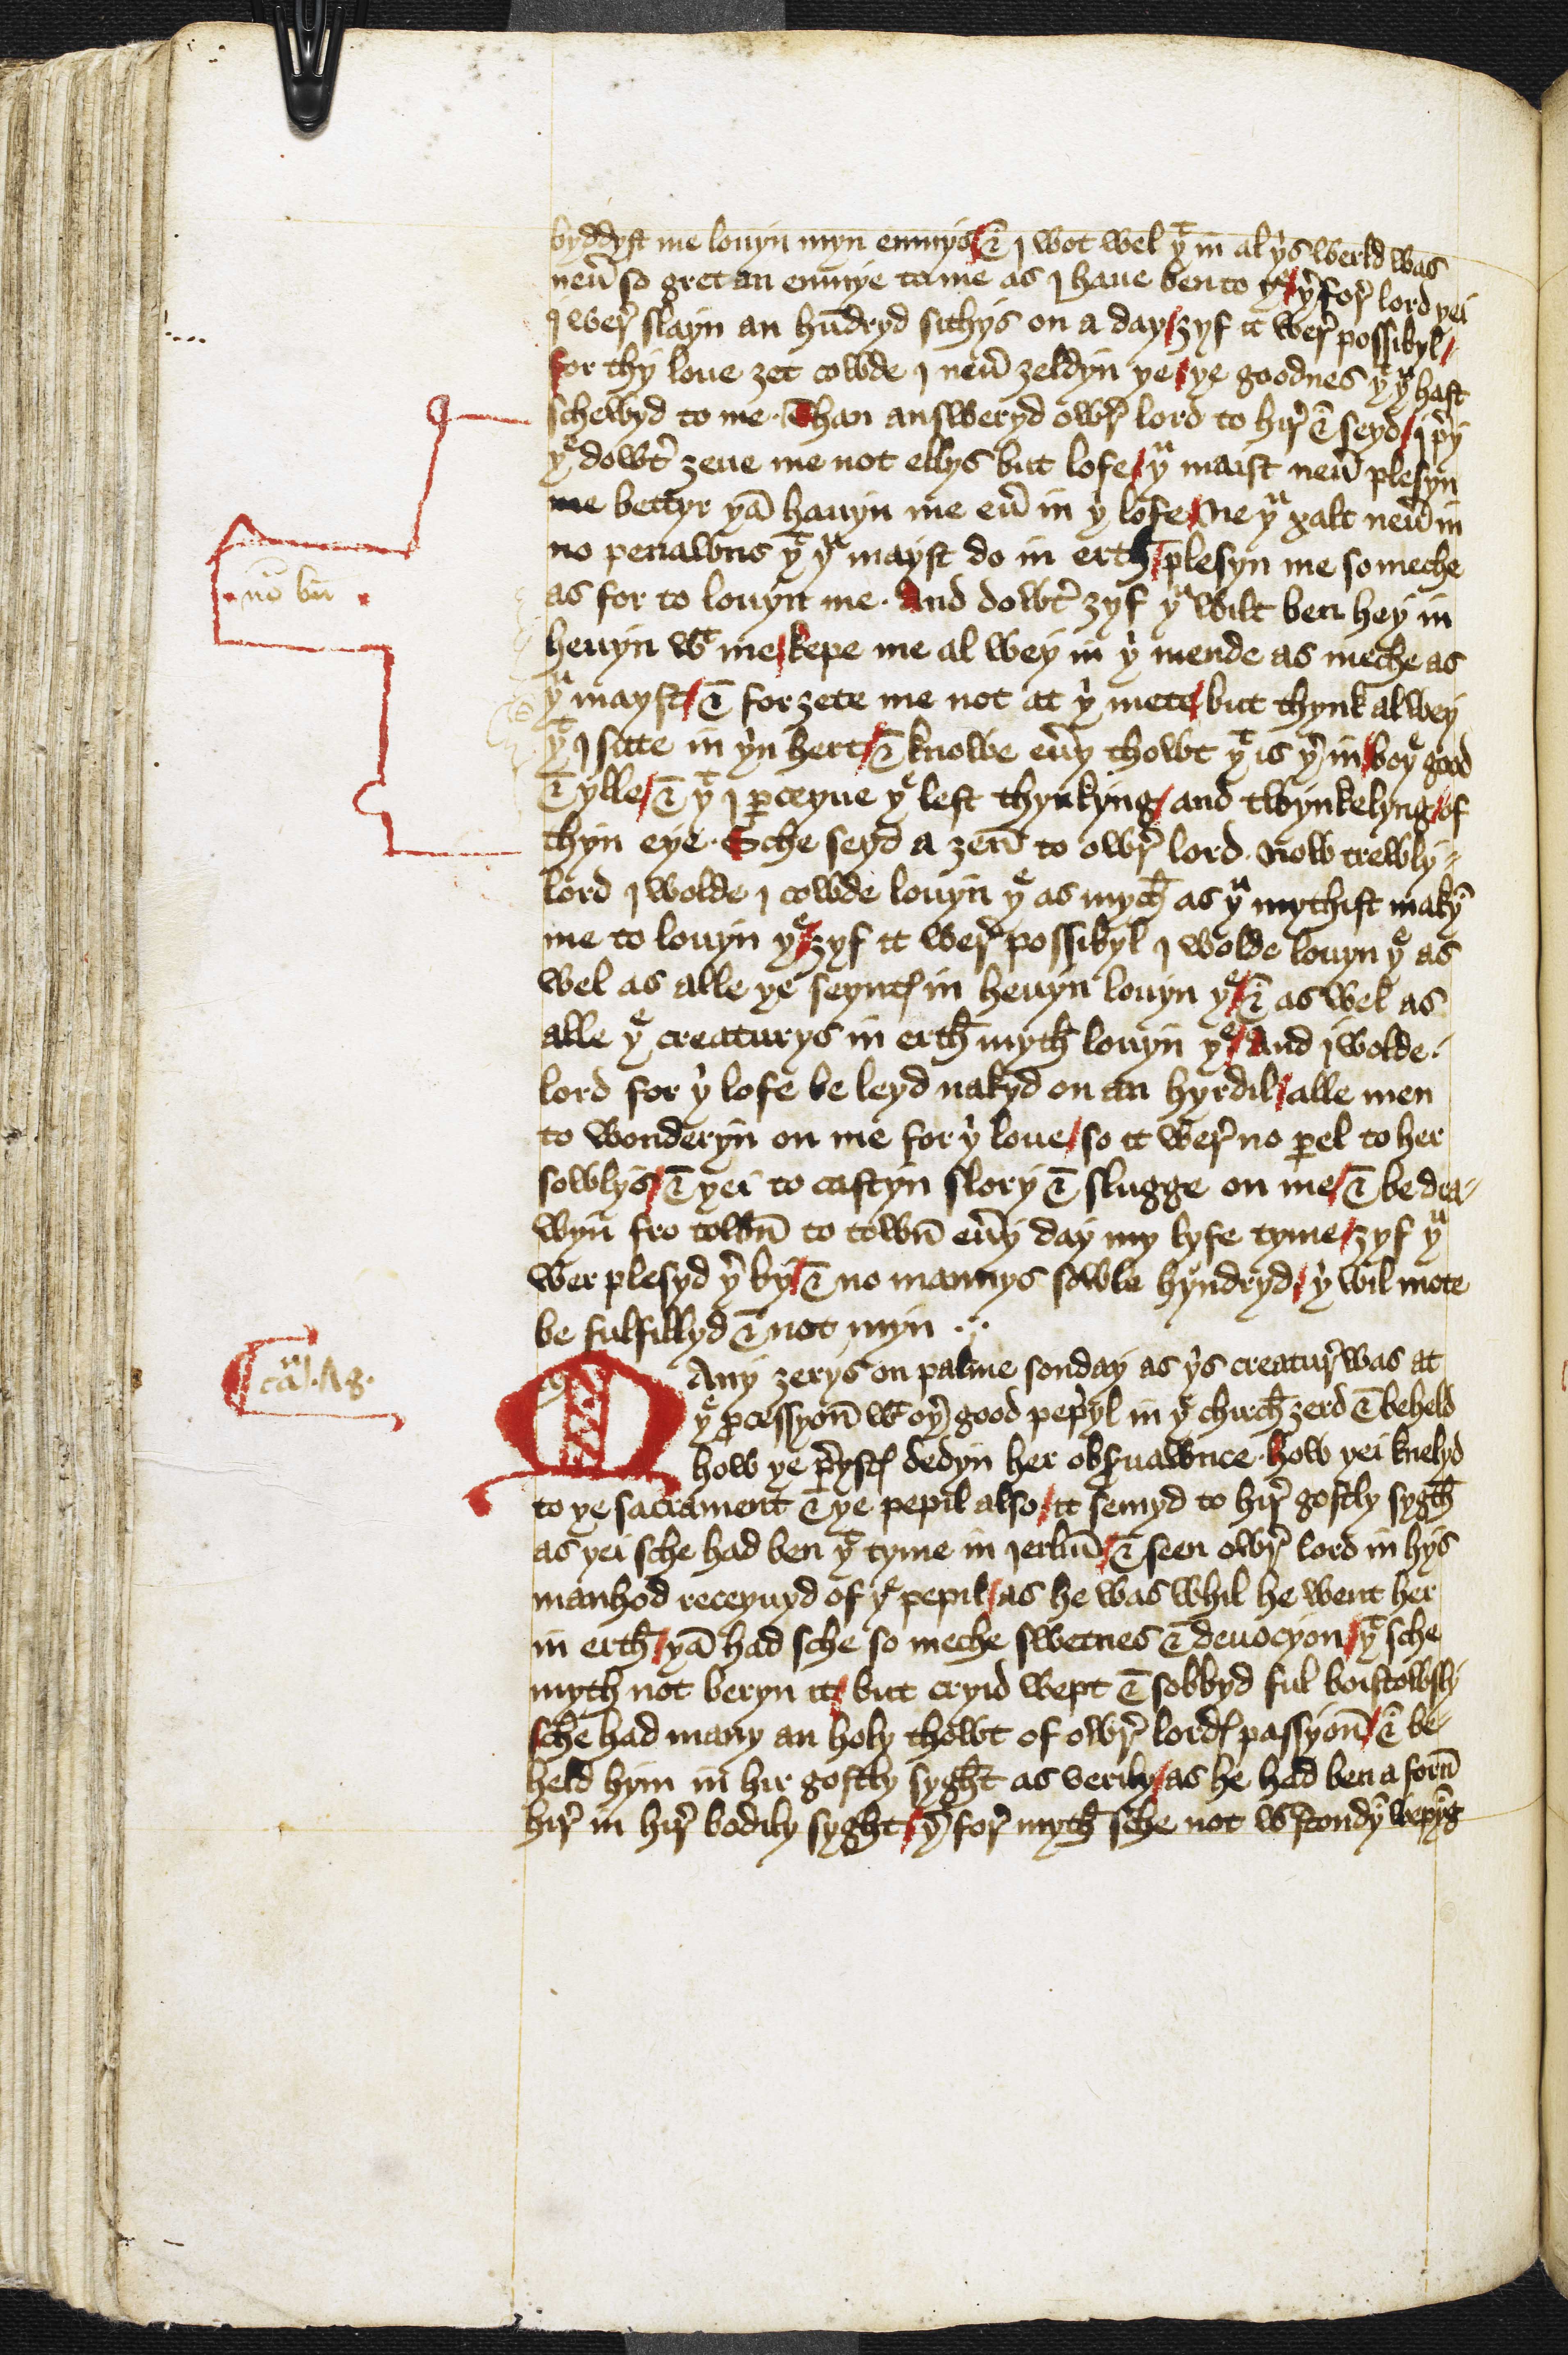 byddyst me louyn myn enmys / & I wot wel yᵗ in al yis werld was
neuer so gret an enmye to me as I haue ben to yᵉ / yerfor lord yei
I wer slayn an hundryd sithys on a day / ȝyf it wer possibyl /
for thy loue ȝet cowde I neuer ȝeldyn ye / ye goodnes yᵗ yᵘ hast
schewyd to me. Than answeryd owr lord to hir & seyd / I prey
yᵉ dowter ȝeue me not ellys but lofe / yᵘ maist neuer plesyn
me bettyr yan hauyn me euer in yi lofe / Ne yᵘ xalt neuer in
no penawns yᵗ yᵘ mayst do in erth / plesyn me so meche
as for to louyn me. And dowter ȝyf yᵘ wilt ben hey in
heuyn wᵗ me / kepe me al wey in yi mende as meche as
yᵘ mayst / & forȝete me not at yi mete / but thynk alwey
yᵗ I sitte in yin hert / & knowe euery thowt yᵗ is yer in / boye good
& ylle / & yᵗ I perceyue yᵉ lest thynkyng / and twynkelyng / of
thyn eye. Sche seyd a ȝen to owr lord. Now trewly
lord I wolde I cowde louyn yᵉ as mych as yᵘ mythist makyn
me to louyn yᵉ / ȝyf it wer possibyl I wolde louyn yᵉ as
wel as alle ye seyntes in heuyn louyn yᵉ / & as wel as
alle yᵉ creaturys in erth myth louyn yᵉ / And I wolde
lord for yi lofe be leyd nakyd on an hyrdil / alle men
to wonderyn on me for yi loue / so it wer no perel to her
sowlys / & yei to castyn slory & slugge on me / & be dra-
wyn fro town to town euery day my lyfe tyme / ȝyf yᵘ
wer plesyd yerby / & no mannys sowle hyndryd / yi wil mote
be fulfillyd & not myn
Many ȝerys on palme sonday as yis creatur was at
yᵉ processyon wᵗ oyer good pepyl in yᵉ chirch ȝerd & beheld
how ye preystes dedyn her obseruawnce. how yei knelyd
to ye sacrament & ye pepil also / it semyd to hir gostly sygth
as yei sche had ben yᵗ tyme in Ierusalem / & seen owr lord in hys
manhod receyuyd of yᵉ pepil / as he was whil he went her
in erth / yan had sche so meche swetnes & deuocyon / yᵗ sche
myth not beryn it / but cryid wept & sobbyd ful boistowsly
sche had many an holy thowt of owr lordes passyon / & be-
held hym in hir gostly syght as verily / as he had ben a forn
hir in hir bodily syght / yerfor myth sche not wᵗstondyn wepyng
no bn
cam 78.